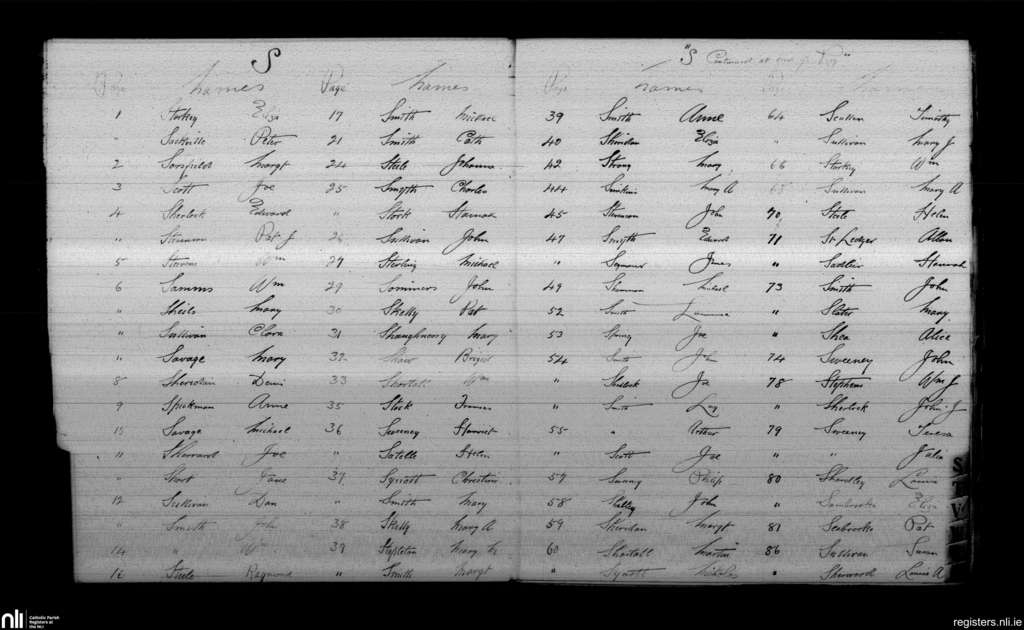 S
"S Continued at end of
Page Names Page Names
Page Names Names
1 Starkey Eliza 17 Smith Michael 39 Smith Anne 64 Scullen Timothy
" Sackville Peter 21 Smith Cath 40 Sheridan Eliza " Sullivan Mary J
2 Sarsfield Margt 24 Steele Johanna 42 Strong Mary 66 Starkey Wm
3 Scott Joe 25 Smyth Charles 44 Simkins Mary A 68 Sullivan Mary A
4 Sherlock Edward " Stock Hannah 45 Stevenson John 70 Steele Helen
" Stevenson Pat J 26 Sullivan John 47 Smyth Edward 71 St Ledger Allen
5 Stevens Wm 27 Sterling Michael " Seymour James " Sadlier Hannah
6 Samms Wm 29 Sommers John 49 Shannon Michael 73 Smith John
" Sheils Mary 30 Skelly Pat 52 Smith " Slater Mary
" Sullivan Clara 31 Shaughnessy Mary 53 Spring Joe " Shea Alice
" Savage Mary 32 Shaw Brigid 54 Smith John 74 Sweeney John
8 Sheridan Denis 33 Shortall Wm " Sherlock Joe 78 Stephens Wm J
9 Speckman Anne 35 Stock Frances " Smith Lucy " Sherlock John J
10 Savage Michael 36 Sweeney Harriet 55 " Arthur 79 Sweeney Teresa
11 Sherrard Joe " Sotelle Helen " Scott Joe " " Julia
" Short Jane 37 Synott Christina 57 Sunny Philip 80 Shandley Louis
12 Sullivan Dan " Smith Mary 58 Skelley John " Sambrooke Eliza
" Smith John 38 Skelly Mary A 59 Sheridan Margt 81 Seabrooke Pat
14 " Wm 39 Stapleton Mary 60 Shortall Martin 86 Sullivan Susan
16 Steele Raymond " Smith Margt " Synott Nicholas " Sherwood Louis A
S
W
nli
Catholic Parish
Registers at
the NLI
registers.nli.ie